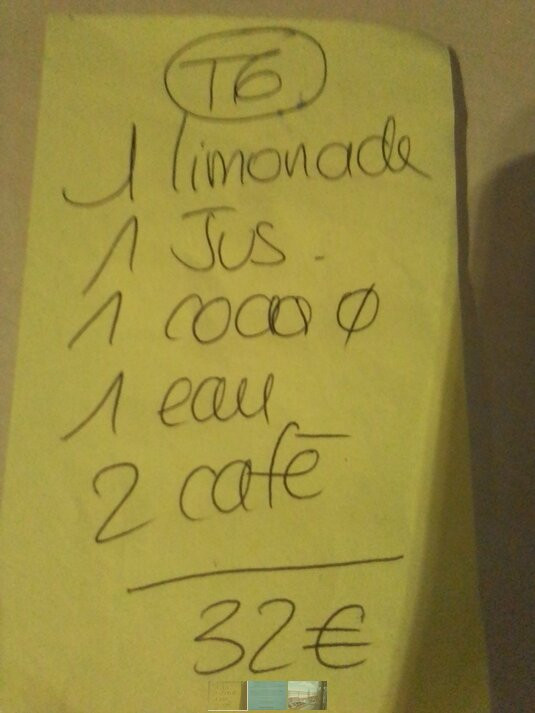 T6
1 limonade
1 Jus.
1 coca 0
1 eau
2 café
32€